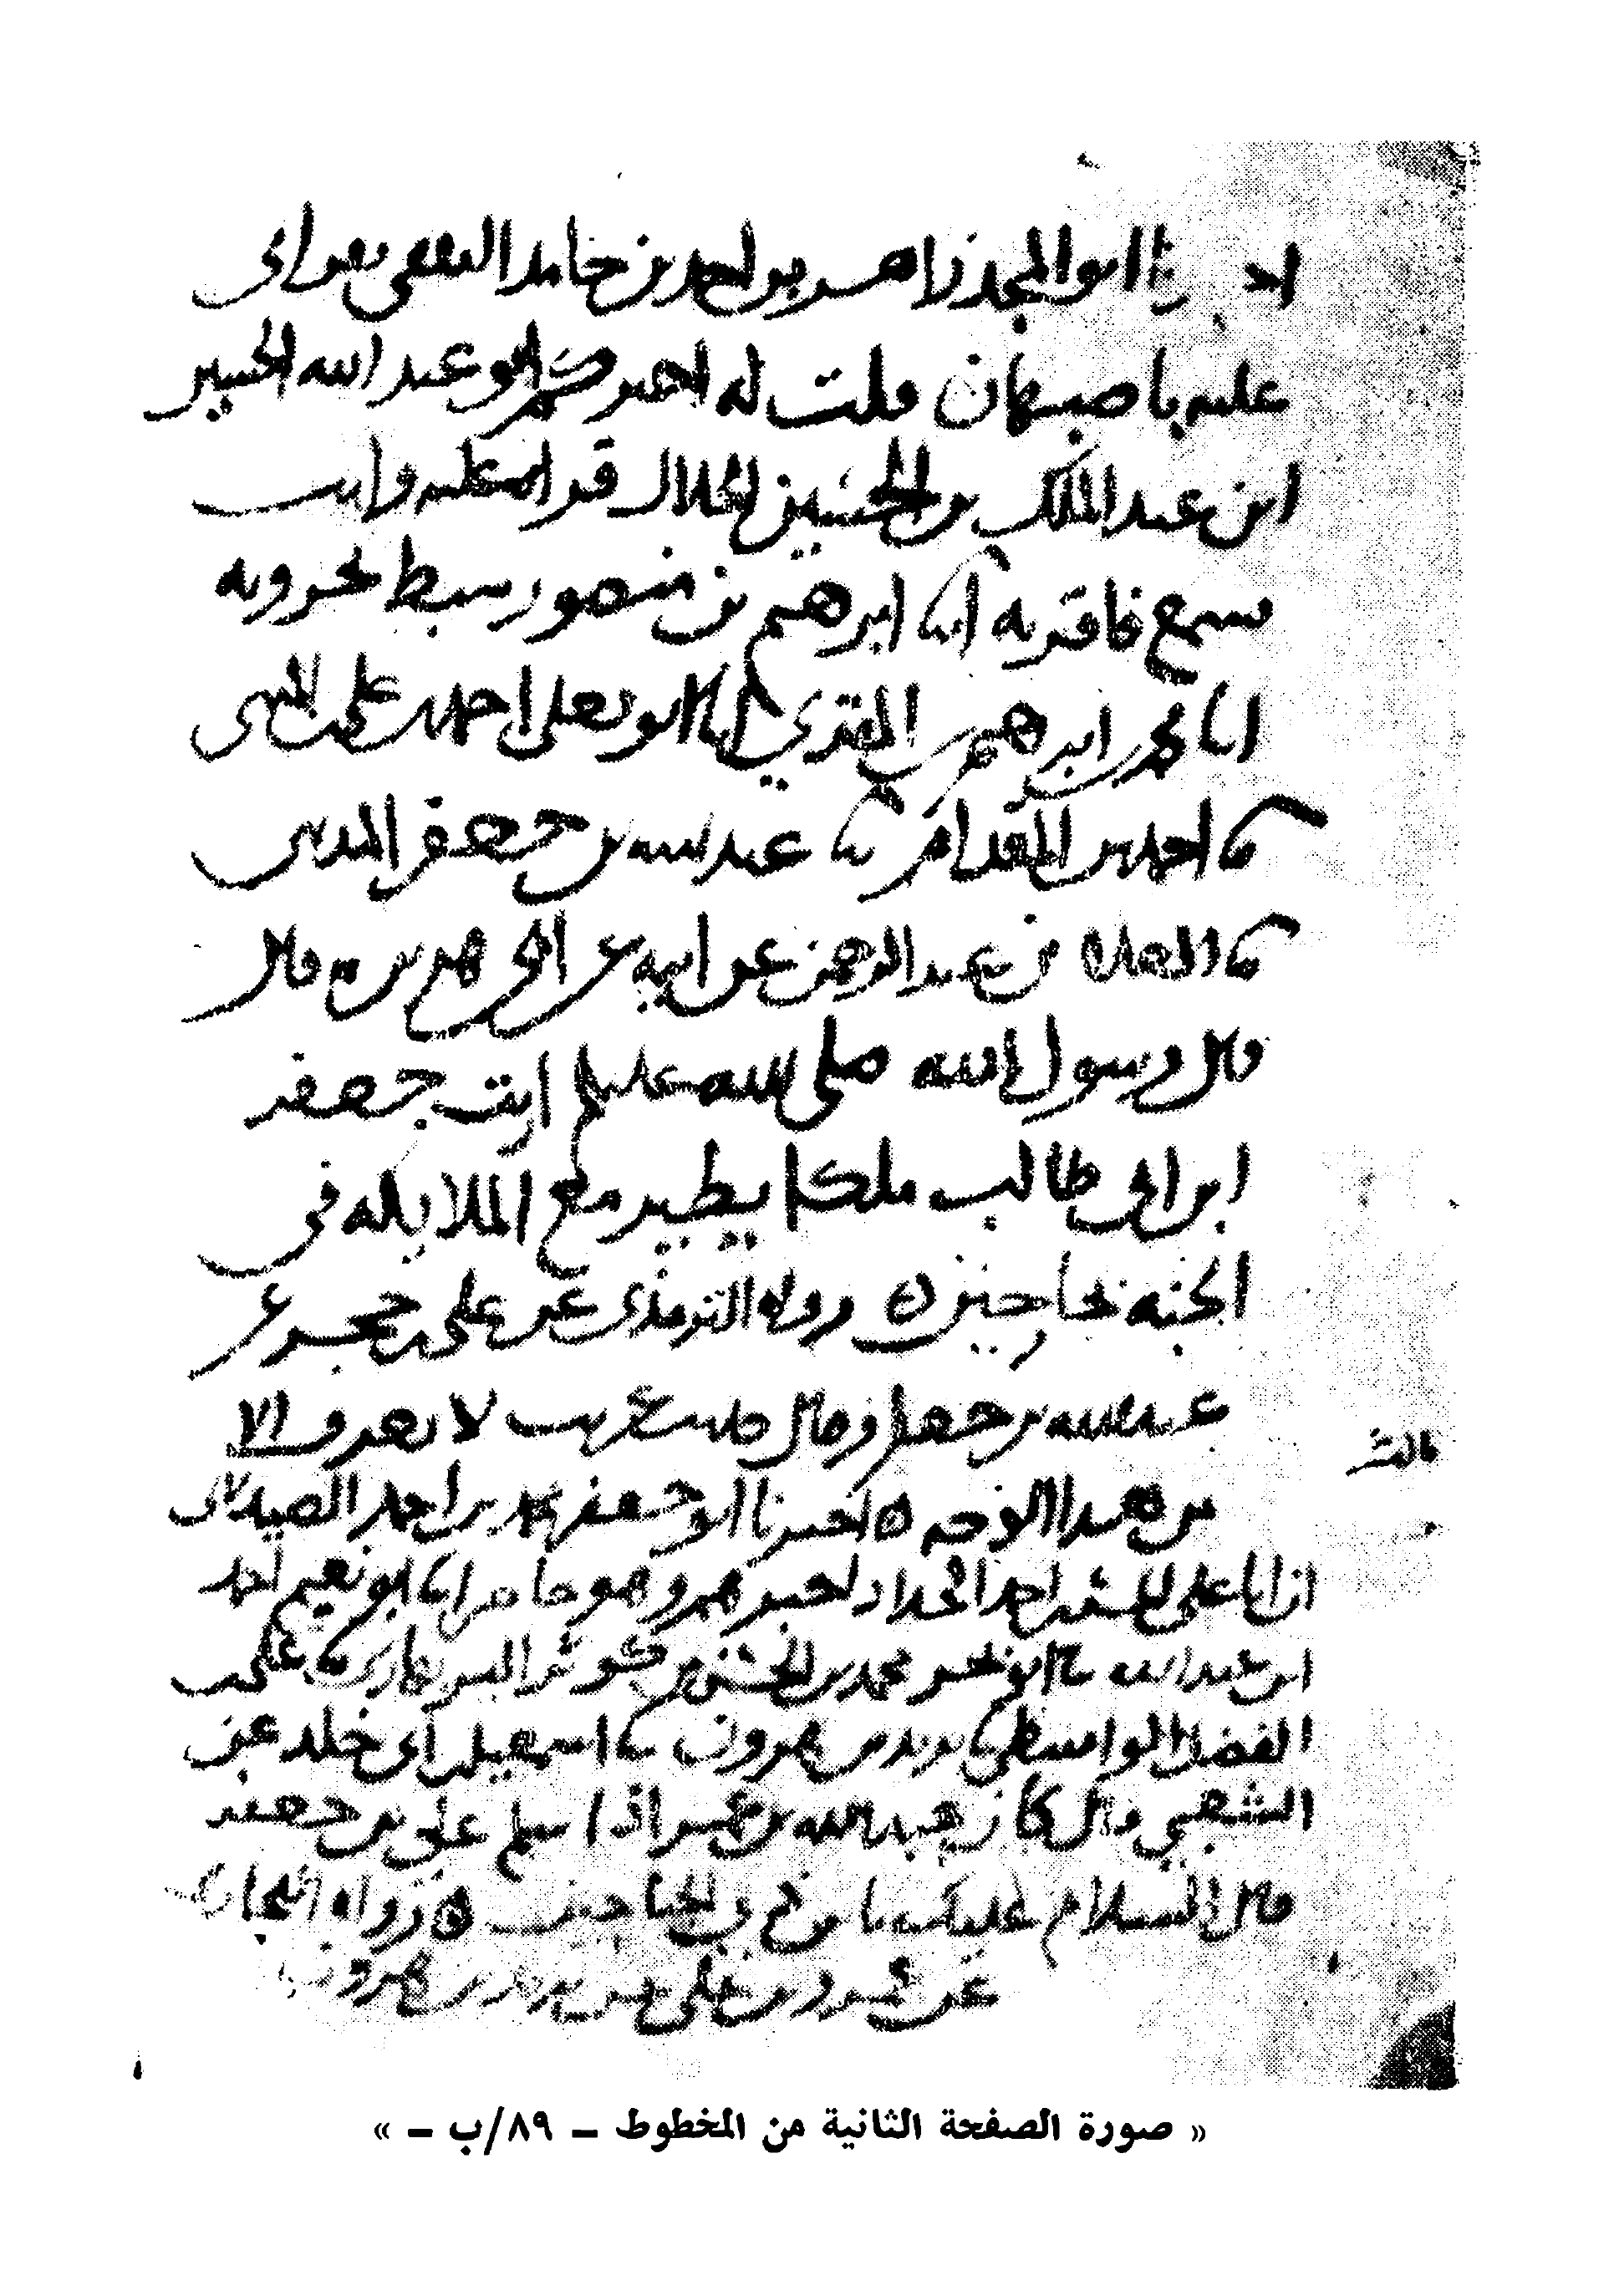 ابو المجد زاهر بن احمد بن حامد الثقفي بقراتي
عليه باصبهان قلت له اخبركم ابو عبد الله الحسين
ابن عبد الملك بن الحسين الخلال قراه عليه وانت
تسمع فاقر به ابنا ابرهيم بن منصور سبط بحرويه
ابنا محمد بن ابرهيم بن المقري ابنا ابو يعلى احمد بن علي بن المثنى
ثنا احمد بن المقدام ثنا عبد الله بن جعفر المديني
ثنا العلاء بن عبد الرحمن عن ابيه عن ابي هريرة قال
قال رسول الله صلى الله عليه وسلم اريت جعفر
ابن ابي طالب ملكا يطير مع الملايكه في
الجنه بجناحين ٥ رواه الترمذي عن علي بن حجر عن
عبد الله بن جعفر وقال حديث غريب لا يعرف الا
من هذا الوجه ٥ اخبرنا ابو جعفر محمد بن احمد الصيدلاني
ان ابا علي الحسن بن احمد الحداد اخبرهم وهو حاضر ابنا ابو نعيم احمد
ابن عبد الله ثنا ابو بحر محمد بن الحسن بن كوثر البربهاري ثنا علي بن
الفضل الواسطي ثنا يزيد بن هرون ثنا اسمعيل بن ابي خلد عن
الشعبي قال كان عبد الله بن عمر اذا سلم على بن جعفر
قال السلام عليك يا بن ذي الجناحين ٥ رواه البخاري
عن عمرو بن علي عن يزيد بن هرون
« صورة الصفحة الثانية من المخطوط – ٨٩/ب – »